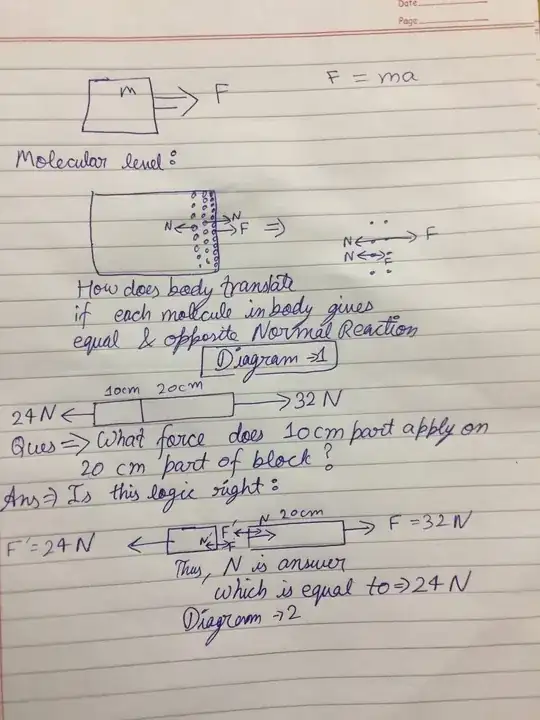 Date
Page
m F F = ma
Molecular level:
N N F ⇒ N F
N F
How does body translate
if each molecule in body gives
equal & opposite Normal Reaction
Diagram → 1
10cm 20cm
24N 32 N
Ques ⇒ What force does 10cm part apply on
20 cm part of block?
Ans ⇒ Is this logic right:
F' = 24 N N F' F N 20cm F = 32 N
Thus, N is answer
which is equal to ⇒ 24 N
Diagram → 2